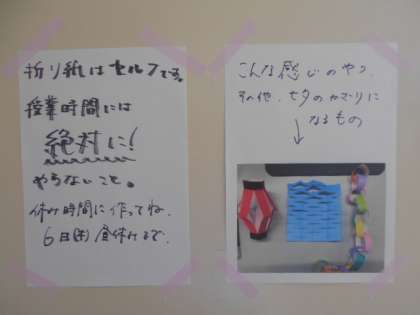 折り紙はセルフです。
授業時間には
絶対に!
やらないこと。
休み時間に作ってね。
6日(木)昼休みまで。
こんな感じのやつ。
その他、七夕のかざりに
なるもの